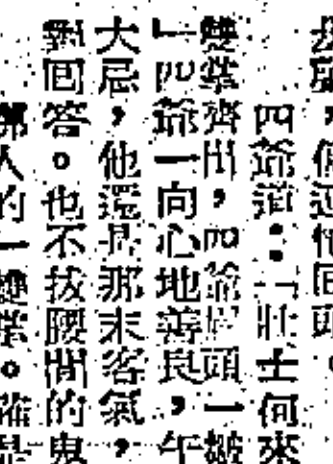 回頭。
四爺道：「壯士何來
雙掌齊出，四爺眉頭一皺
」四爺一向心地善良，午
大忌，他還是那末客氣，
對回答。也不拔腰間的鬼
人的一雙掌。